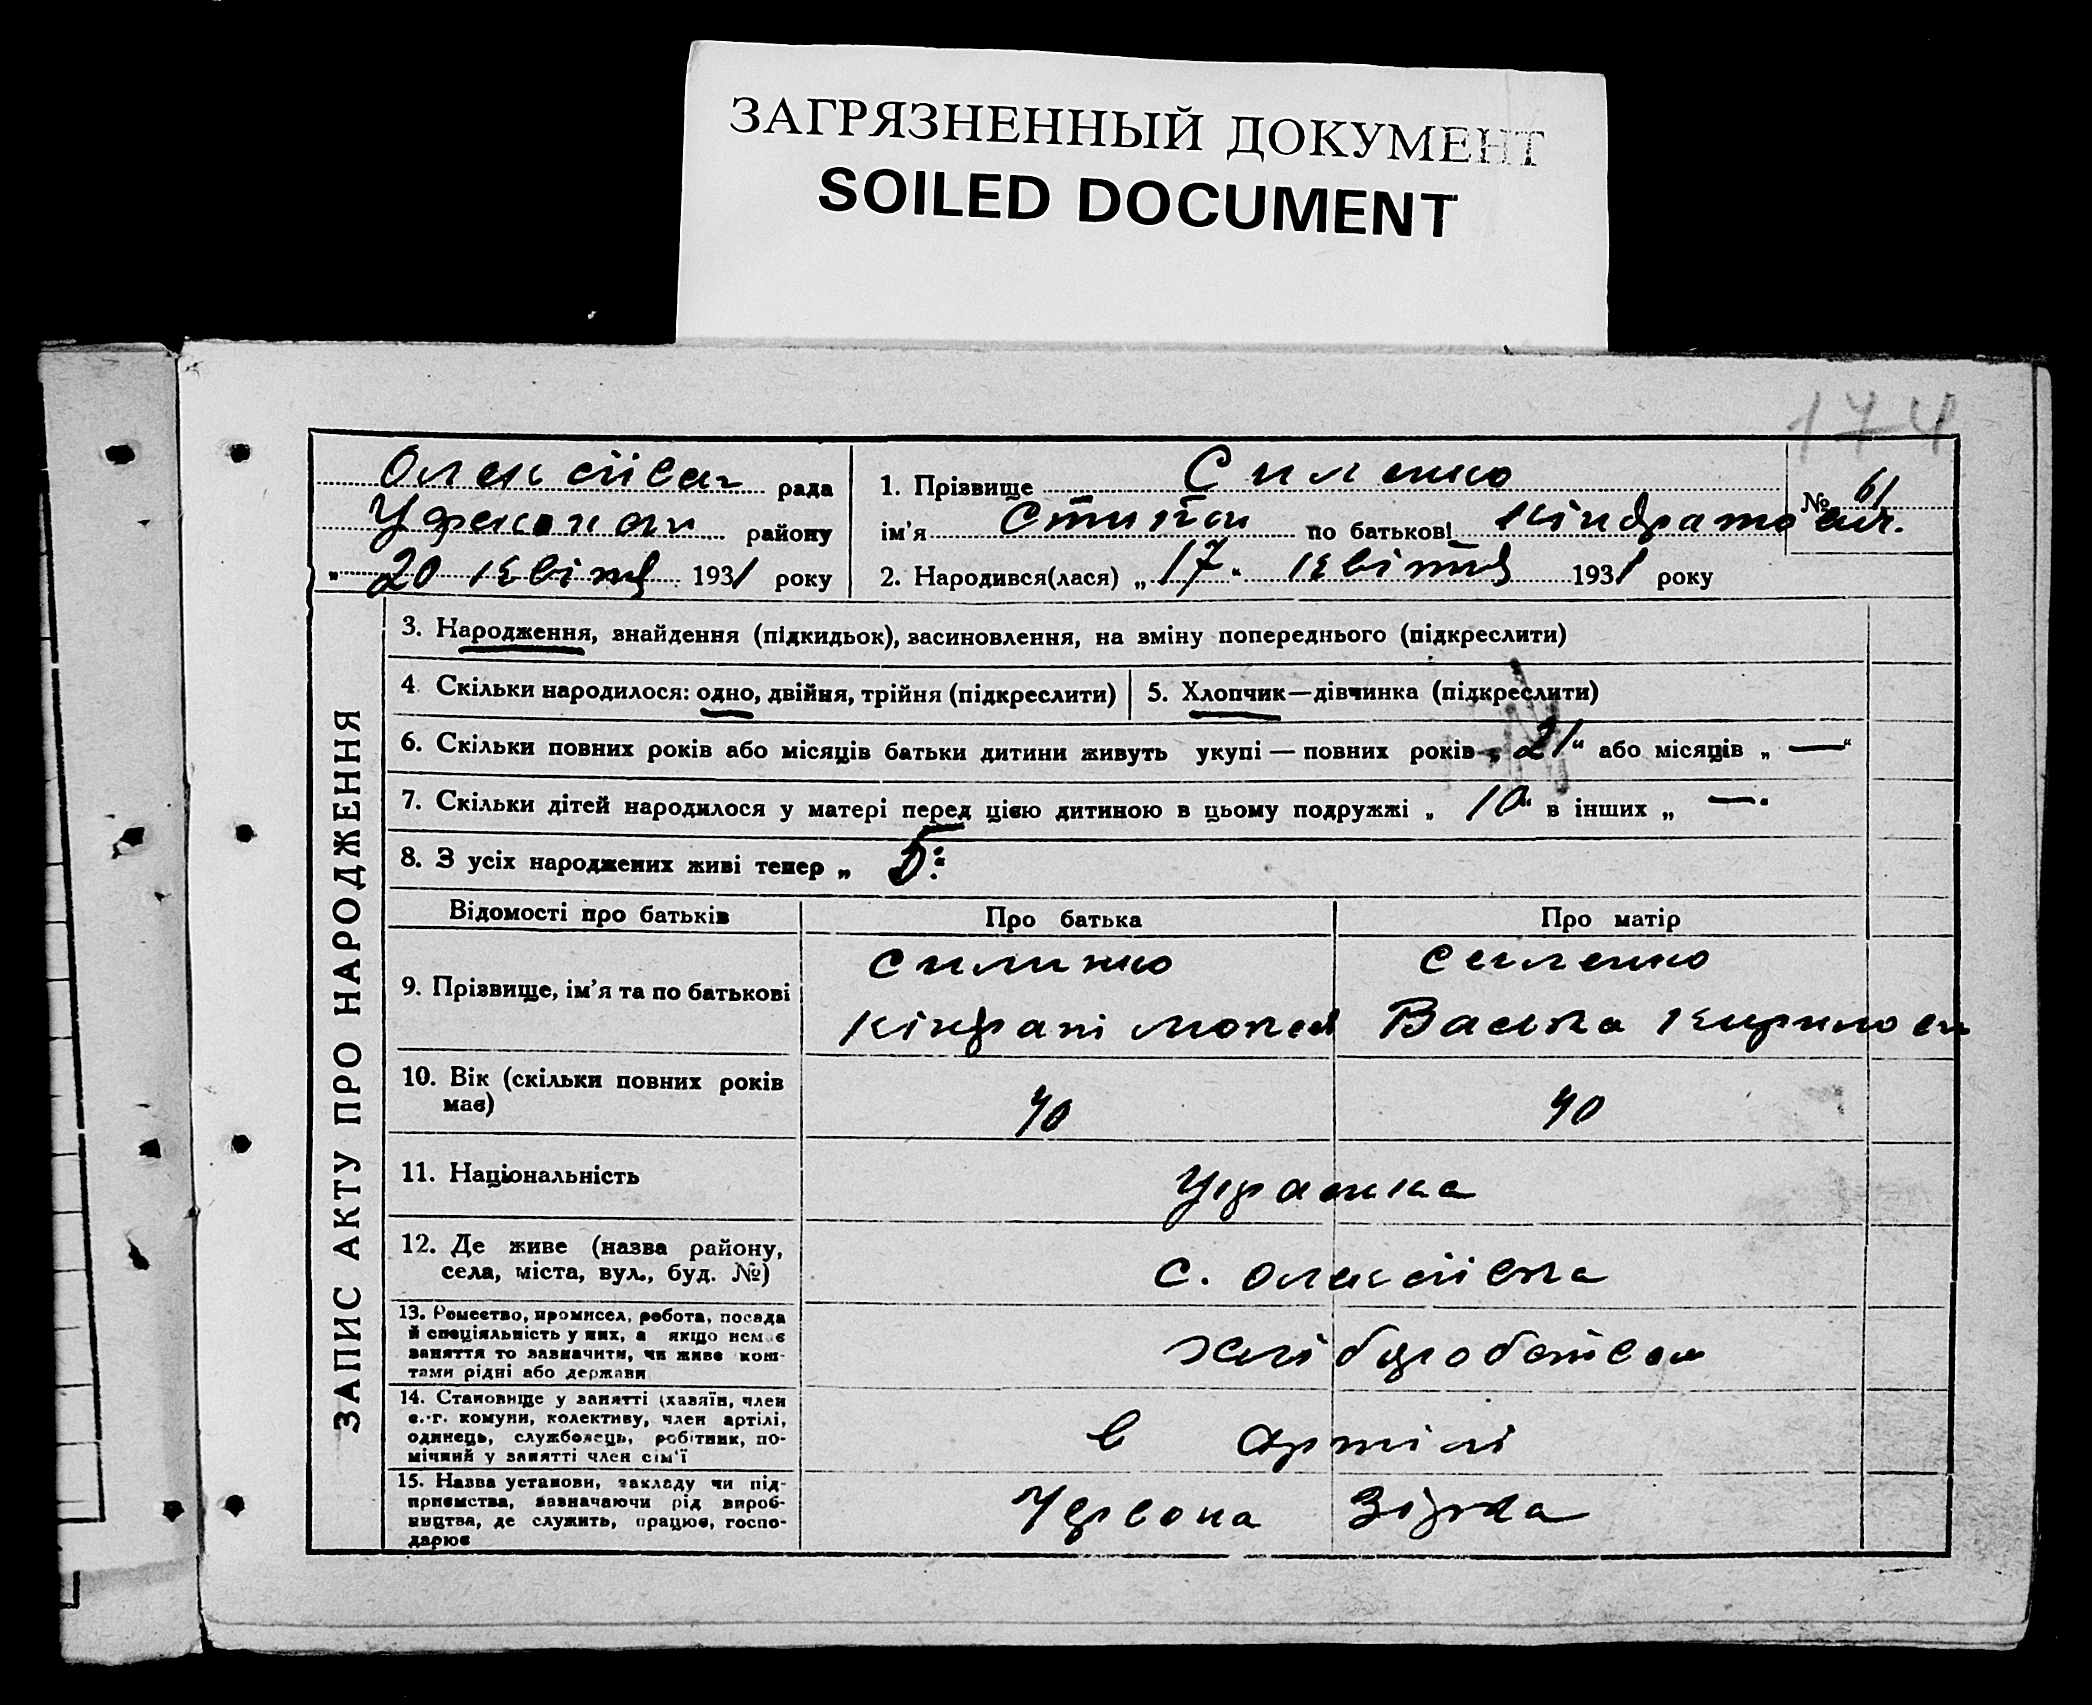 ЗАГРЯЗНЕННЫЙ ДОКУМЕНТ
SOILED DOCUMENT
174
рада
району
„ 20 квітня 1931 року
1. Прізвище Силенко
№ 61
ім'я Степан по батькові Кіндратович.
2. Народився(лася) „ 17 “ квітня 1931 року
ЗАПИС АКТУ ПРО НАРОДЖЕННЯ
3. Народження, знайдення (підкидьок), засиновлення, на зміну попереднього (підкреслити)
4. Скільки народилося: одно, двійня, трійня (підкреслити)
5. Хлопчик—дівчинка (підкреслити)
6. Скільки повних років або місяців батьки дитини живуть укупі — повних років „ 21 “ або місяців „ — “
7. Скільки дітей народилося у матері перед цією дитиною в цьому подружжі „ 10 “ в інших „ — “
8. З усіх народжених живі тепер „ 5 “
Відомості про батьків
Про батька
Про матір
9. Прізвище, ім'я та по батькові
Силинко
Силенко
Кіндрат
Васька
10. Вік (скільки повних років
має)
40
40
11. Національність
12. Де живе (назва району,
села, міста, вул., буд. №)
с. Олексіївка
13. Ремество, промисел, робота, посада
й спеціяльність у них, а якщо немає
заняття то зазначити, чи живе кош-
тами рідні або держави
14. Становище у занятті (хазяїн, член
с.-г. комуни, колективу, член артілі,
одинець, службовець, робітник, по-
мічний у занятті член сім'ї
в артілі
15. Назва установи, закладу чи під-
приємства, зазначаючи рід вироб-
ництва, де служить, працює, госпо-
дарює
Червона Зірка